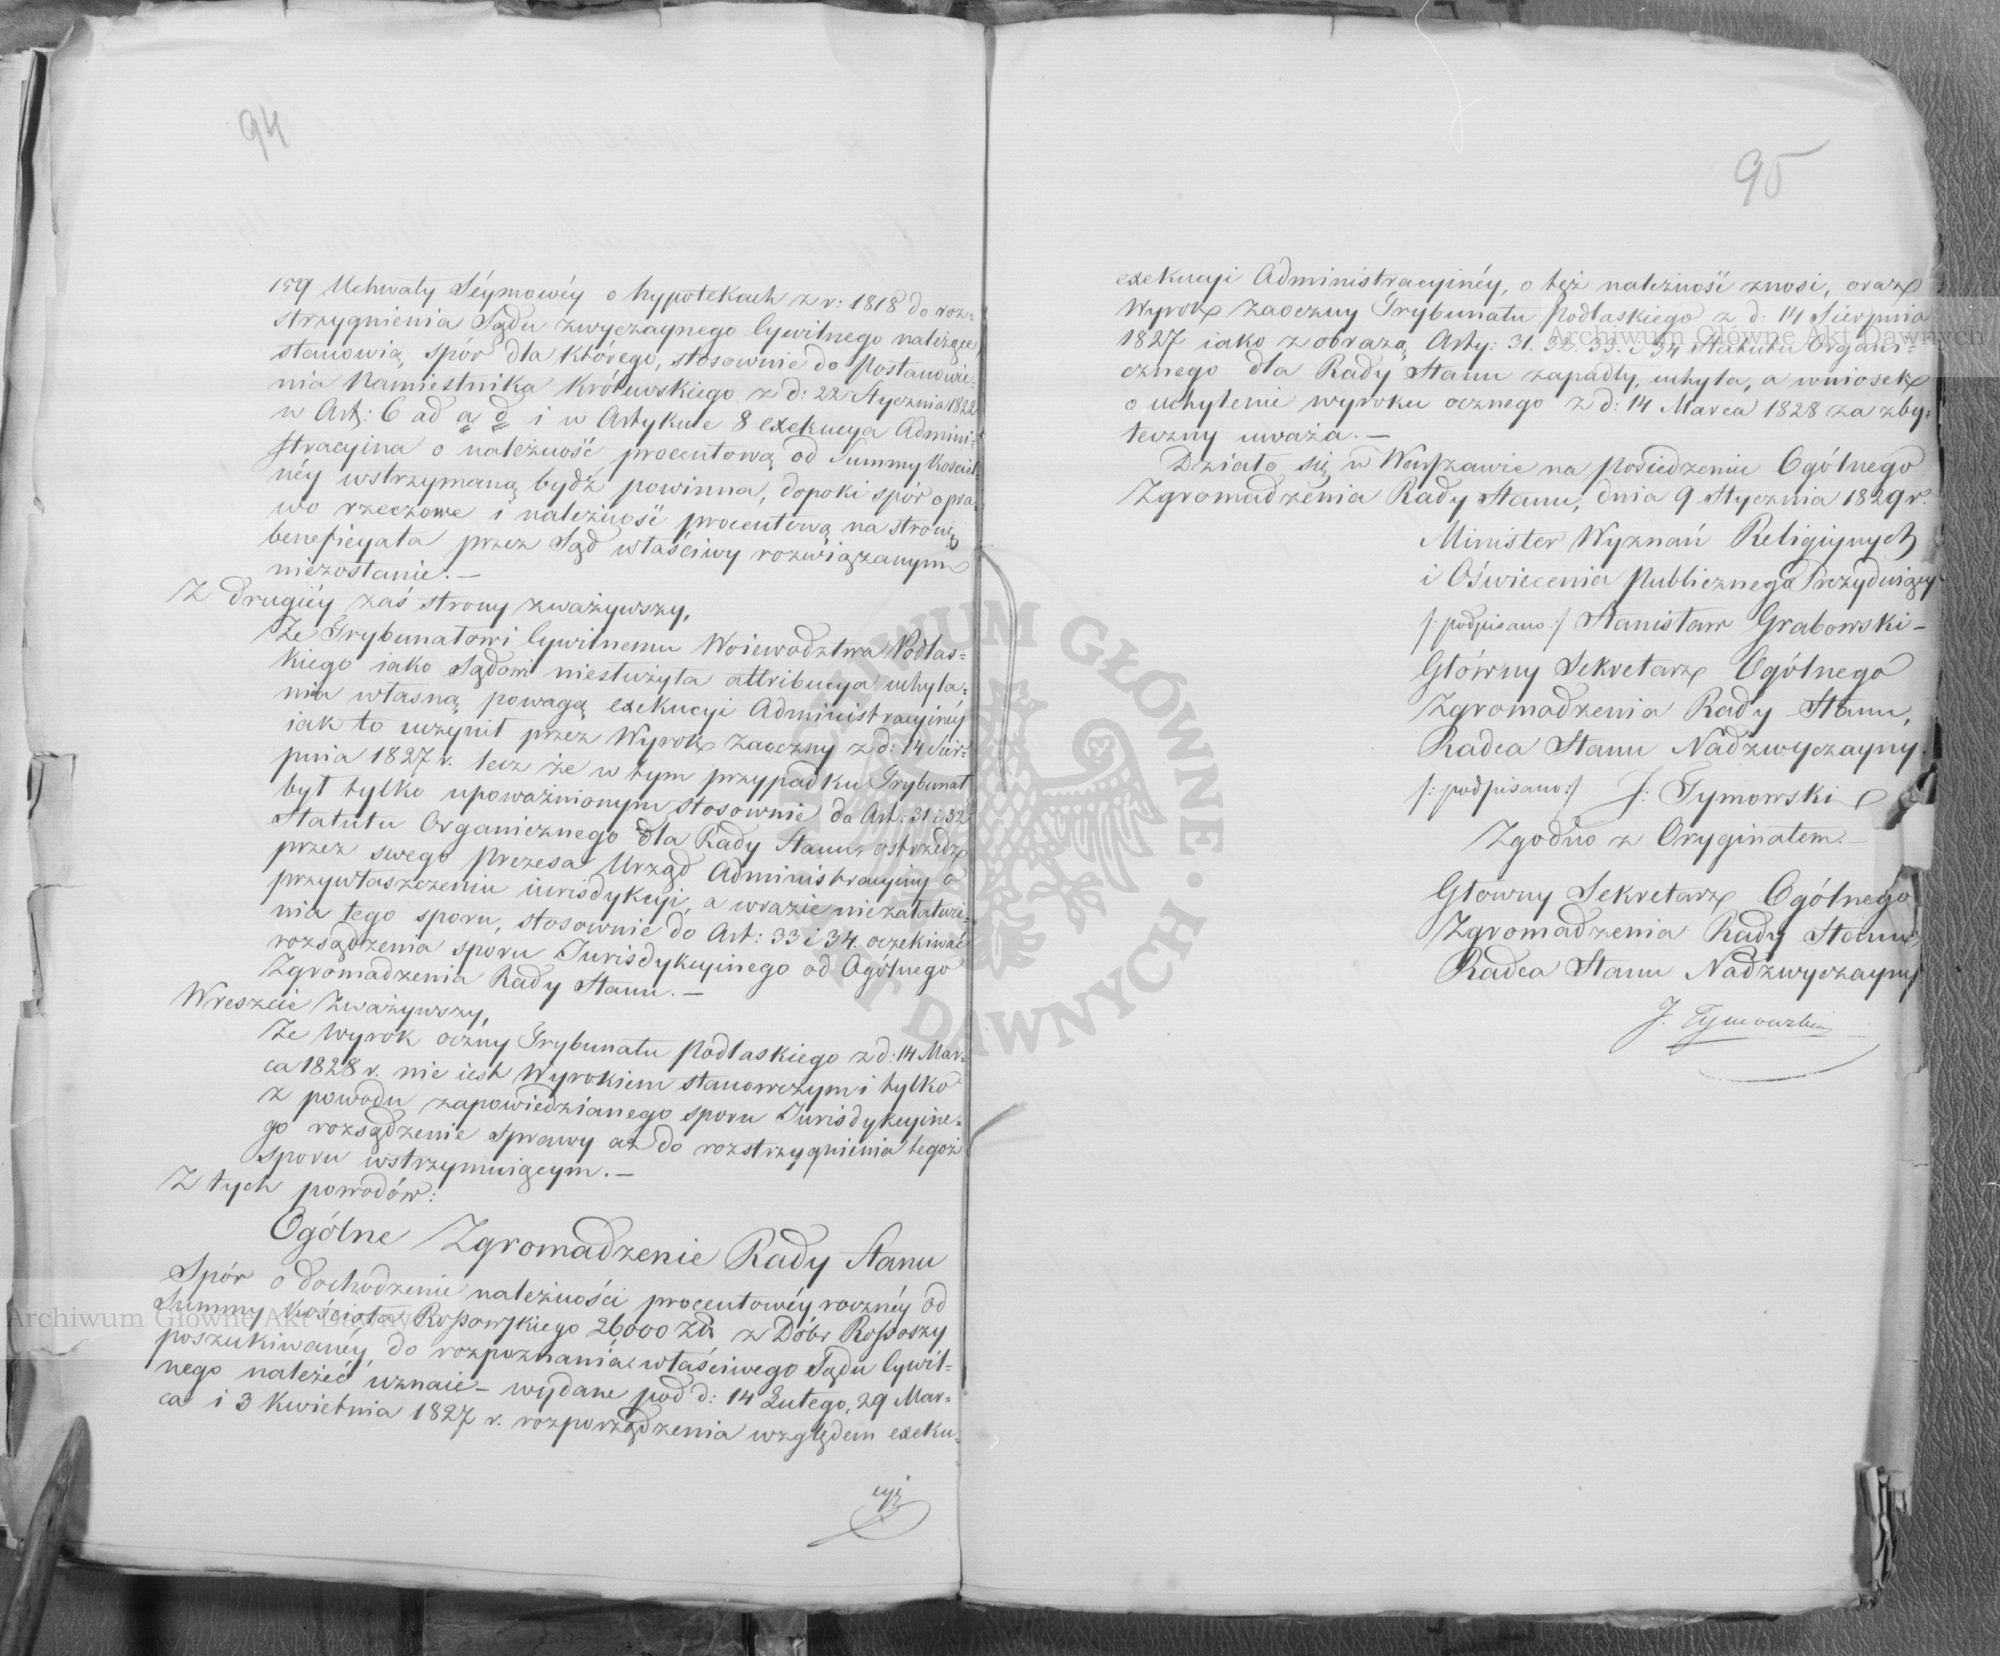 94
159 Uchwały Séymowéy o hypotekach z r: 1818 do roz=
strzygnienia Sądu zwyczaynego Cywilnego należące,
stanowią, spór dla którego, stosownie do Postanowie=
nia Namiestnika Królewskiego z d: 22 Stycznia 1822
w Art: 6 ad a d i w Artykule 8 exekucya Admini=
stracyina o należność procentową od Summy Kościel
néy wstrzymaną bydź powinna, dopoki spór o pra=
wo rzeczowe i należność procentową na stronę
beneficyata przez Sąd właściwy rozwiązanym
niezostanie.—
Z drugiéy zaś strony zważywszy,
Że Trybunałowi Cywilnemu Woiewodztwa Podlas=
kiego iako Sądowi niesłużyła attribucya uchyla=
nia własną powagą exekucyi Administracyinéy
iak to uczynił przez Wyrok zaoczny z d: 14 Sier=
pnia 1827 r. lecz że w tym przypadku Trybunał
był tylko upoważnionym stosownie do Art: 31 i 32
Statutu Organicznego dla Rady Stanu, ostrzedz
przez swego Prezesa Urząd Administracyiny o
przywłaszczeniu iurisdykcyi, a wrazie niezałatwie=
nia tego sporu, stosownie do Art: 33 i 34. oczekiwać
rozsądzenia sporu Jurisdykcyinego od Ogólnego
Zgromadzenia Rady Stanu.—
Wreszcie Zważywszy,
Że Wyrok oczny Trybunału Podlaskiego z d: 14 Mar=
ca 1828 r. nie iest Wyrokiem stanowczym i tylko
z powodu zapowiedzianego sporu Jurisdykcyine=
go rozsądzenie sprawy aż do rozstrzygnienia tegoż
sporu wstrzymuiącym.—
Z tych powodów:
Ogólne Zgromadzenie Rady Stanu
Spór o dochodzenie należności procentowéy roczney od
Summy Kościoła Rossowskiego 26000 Zł. z Dóbr Rossoszy
poszukiwanéy, do rozpoznania właściwego Sądu Cywil=
nego należeć uznaie – wydane pod d: 14 Lutego, 29 Mar=
ca i 3 Kwietnia 1827 r. rozporządzenia względem exeku=
cyi
95
exekucyi Administracyinéy, o też należność znosi, oraz
Wyrok zaoczny Trybunału Podlaskiego z d: 14 Sierpnia
1827 iako z obrazą Arty: 31. 32. 33. i 34 Statutu Organi=
cznego dla Rady Stanu zapadły, uchyla, a wniosek
o uchylenie wyroku ocznego z d: 14 Marca 1828 za zby=
teczny uważa.—
Działo się w Warszawie na posiedzeniu Ogólnego
Zgromadzenia Rady Stanu, dnia 9 Stycznia 1829 r.
Minister Wyznań Religiynych
i Oświecenia Publicznego Prezyduiący
/: podpisano :/ Stanisław Grabowski –
Główny Sekretarz Ogólnego
Zgromadzenia Rady Stanu,
Radca Stanu Nadzwyczayny.
/: podpisano :/ J: Tymowski
Zgodno z Oryginałem.—
Głowny Sekretarz Ogólnego
Zgromadzenia Rady Stanu,
Radca Stanu Nadzwyczayny
J. Tymowski
Archiwum Główne Akt Dawnych
Archiwum Główne Akt Dawnych
ARCHIWUM GŁÓWNE · AKT DAWNYCH ·